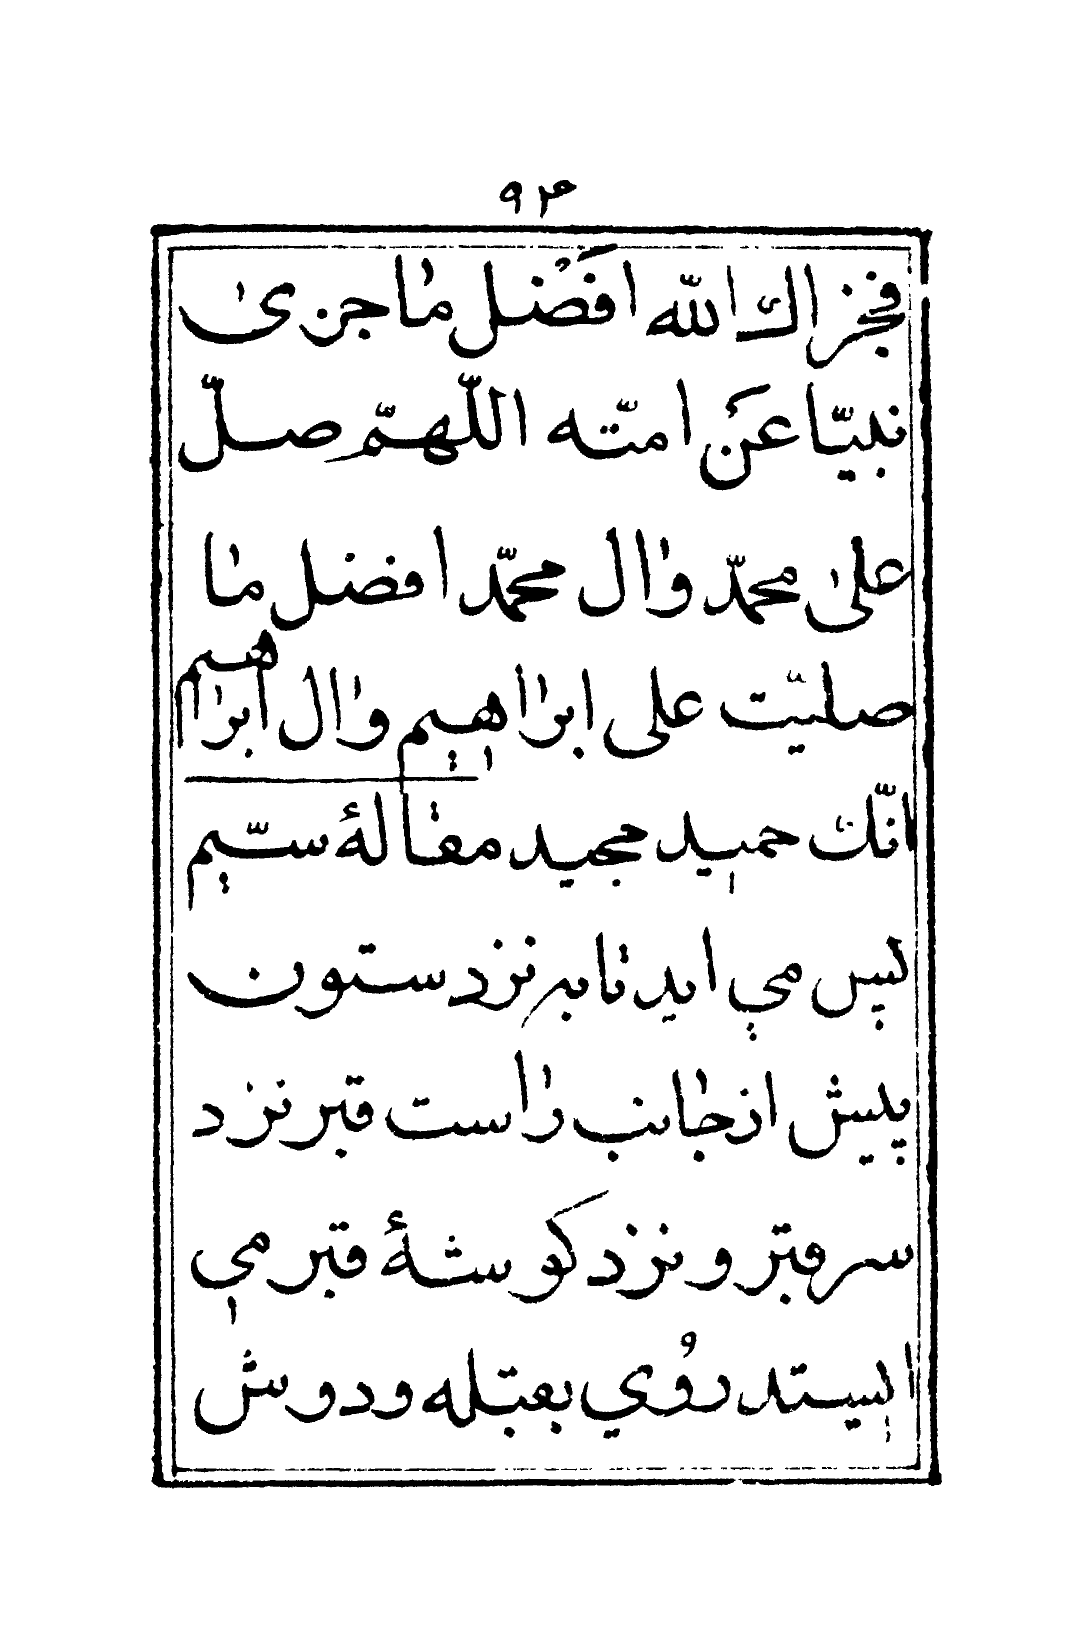 ۹۴
فجزاك الله افضل ما جزى
نبیّا عن امّته اللّهمّ صلّ
على محمّد وال محمّد افضل ما
صلیّت على ابراهیم وال ابراهیم
انّك حمید مجید مقالهٔ سیّم
پس می اید تا به نزد ستون
پیش از جانب راست قبر نزد
سر قبر و نزد کوشهٔ قبر می
ایستد روُي بقبله و دوش